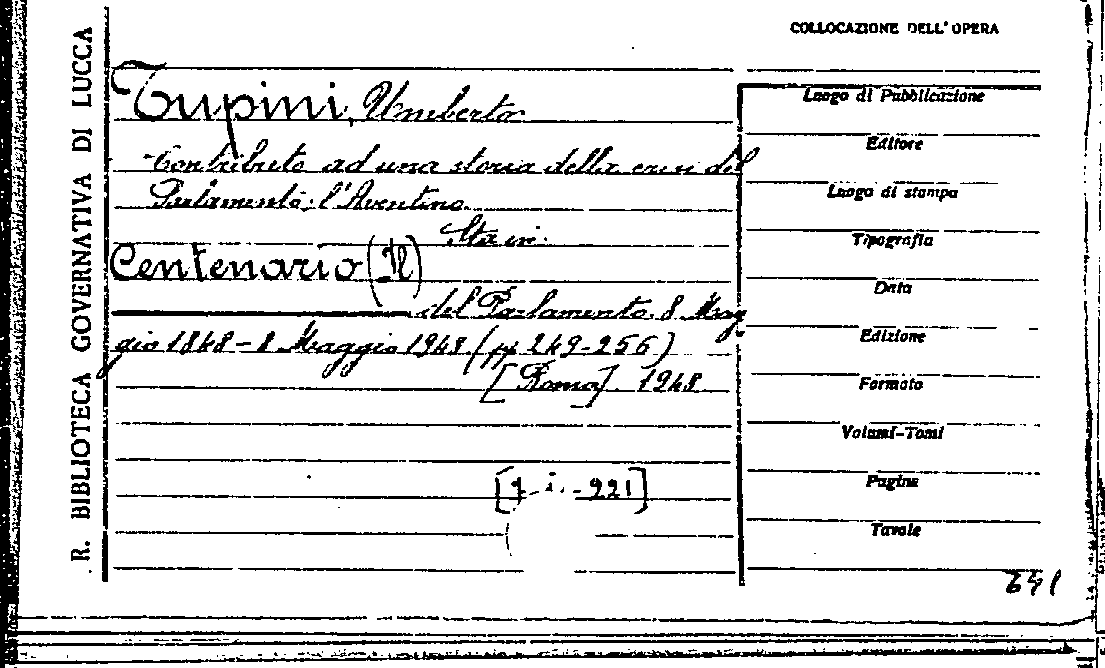 R. BIBLIOTECA GOVERNATIVA DI LUCCA
COLLOCAZIONE DELL'OPERA
Tupini, Umberto
Contributo ad una storia della crisi del
Parlamento: l'Aventino.
Sta in:
Centenario (Il)
del Parlamento. 8 Mag
gio 1848 - 8 Maggio 1948 (pp 249-256)
[Roma]. 1948
[7-i.-221]
Luogo di Pubblicazione
Editore
Luogo di stampa
Tipografia
Data
Edizione
Formato
Volumi-Tomi
Pagine
Tavole